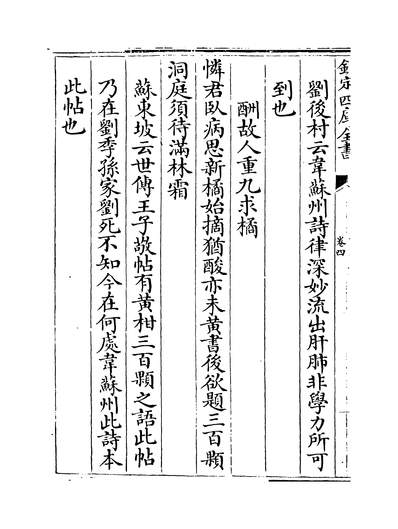 欽定四庫全書
卷四
劉後村云韋蘇州詩律深妙流出肝肺非學力所可
到也
酬故人重九求橘
憐君臥病思新橘始摘猶酸亦未黄書後欲題三百顆
洞庭須待滿林霜
蘇東坡云世傳王子敬帖有黄柑三百顆之語此帖
乃在劉季孫家劉死不知今在何處韋蘇州此詩本
此帖也